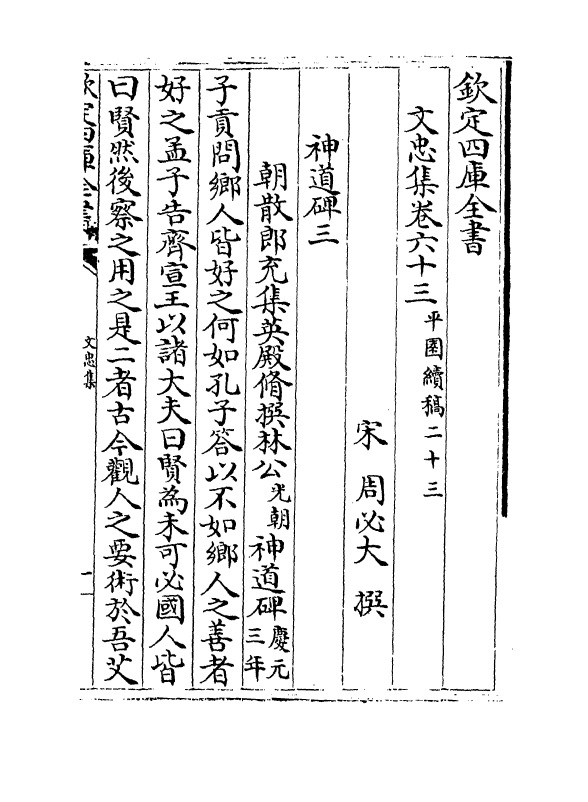 欽定四庫全書
文忠集卷六十三 平園續稿二十三
宋 周必大 撰
神道碑三
朝散郎充集英殿脩撰林公光朝神道碑慶元三年
子貢問鄉人皆好之何如孔子答以不如鄉人之善者
好之孟子告齊宣王以諸大夫曰賢為未可必國人皆
曰賢然後察之用之是二者古今觀人之要術於吾艾
欽定四庫全書
文忠集
一